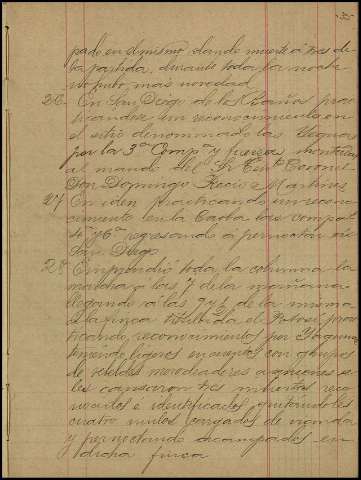 pado en el mismo, dando muerte á tres de
la partida, durante toda la noche
no hubo mas novedad
26 En San Diego de los Baños prac
ticandose un reconocimiento en
el sitio denominado las Yeguas
por la 3ª Compª y fuerza montada
al mando del Sr Tente Coronel
Don Domingo Recio Martinez
27 En iden practicando un recono
cimiento en la Caoba las compas
4ª y 6ª regresando á pernoctar en
San Diego
28 Emprendió toda la columna la
marcha a las 7 de la mañana
llegando á las 9 y ½ de la misma
á la finca titulada el prac
ticando reconocimientos por
teniendo ligeros encuentros con grupos
de rebeldes merodeadores a quienes se
les causaron tres muertos reco
nocidos e identificados, quitándoles
cuatro mulos cargados de vianda
y pernoctando acampados en
dicha finca